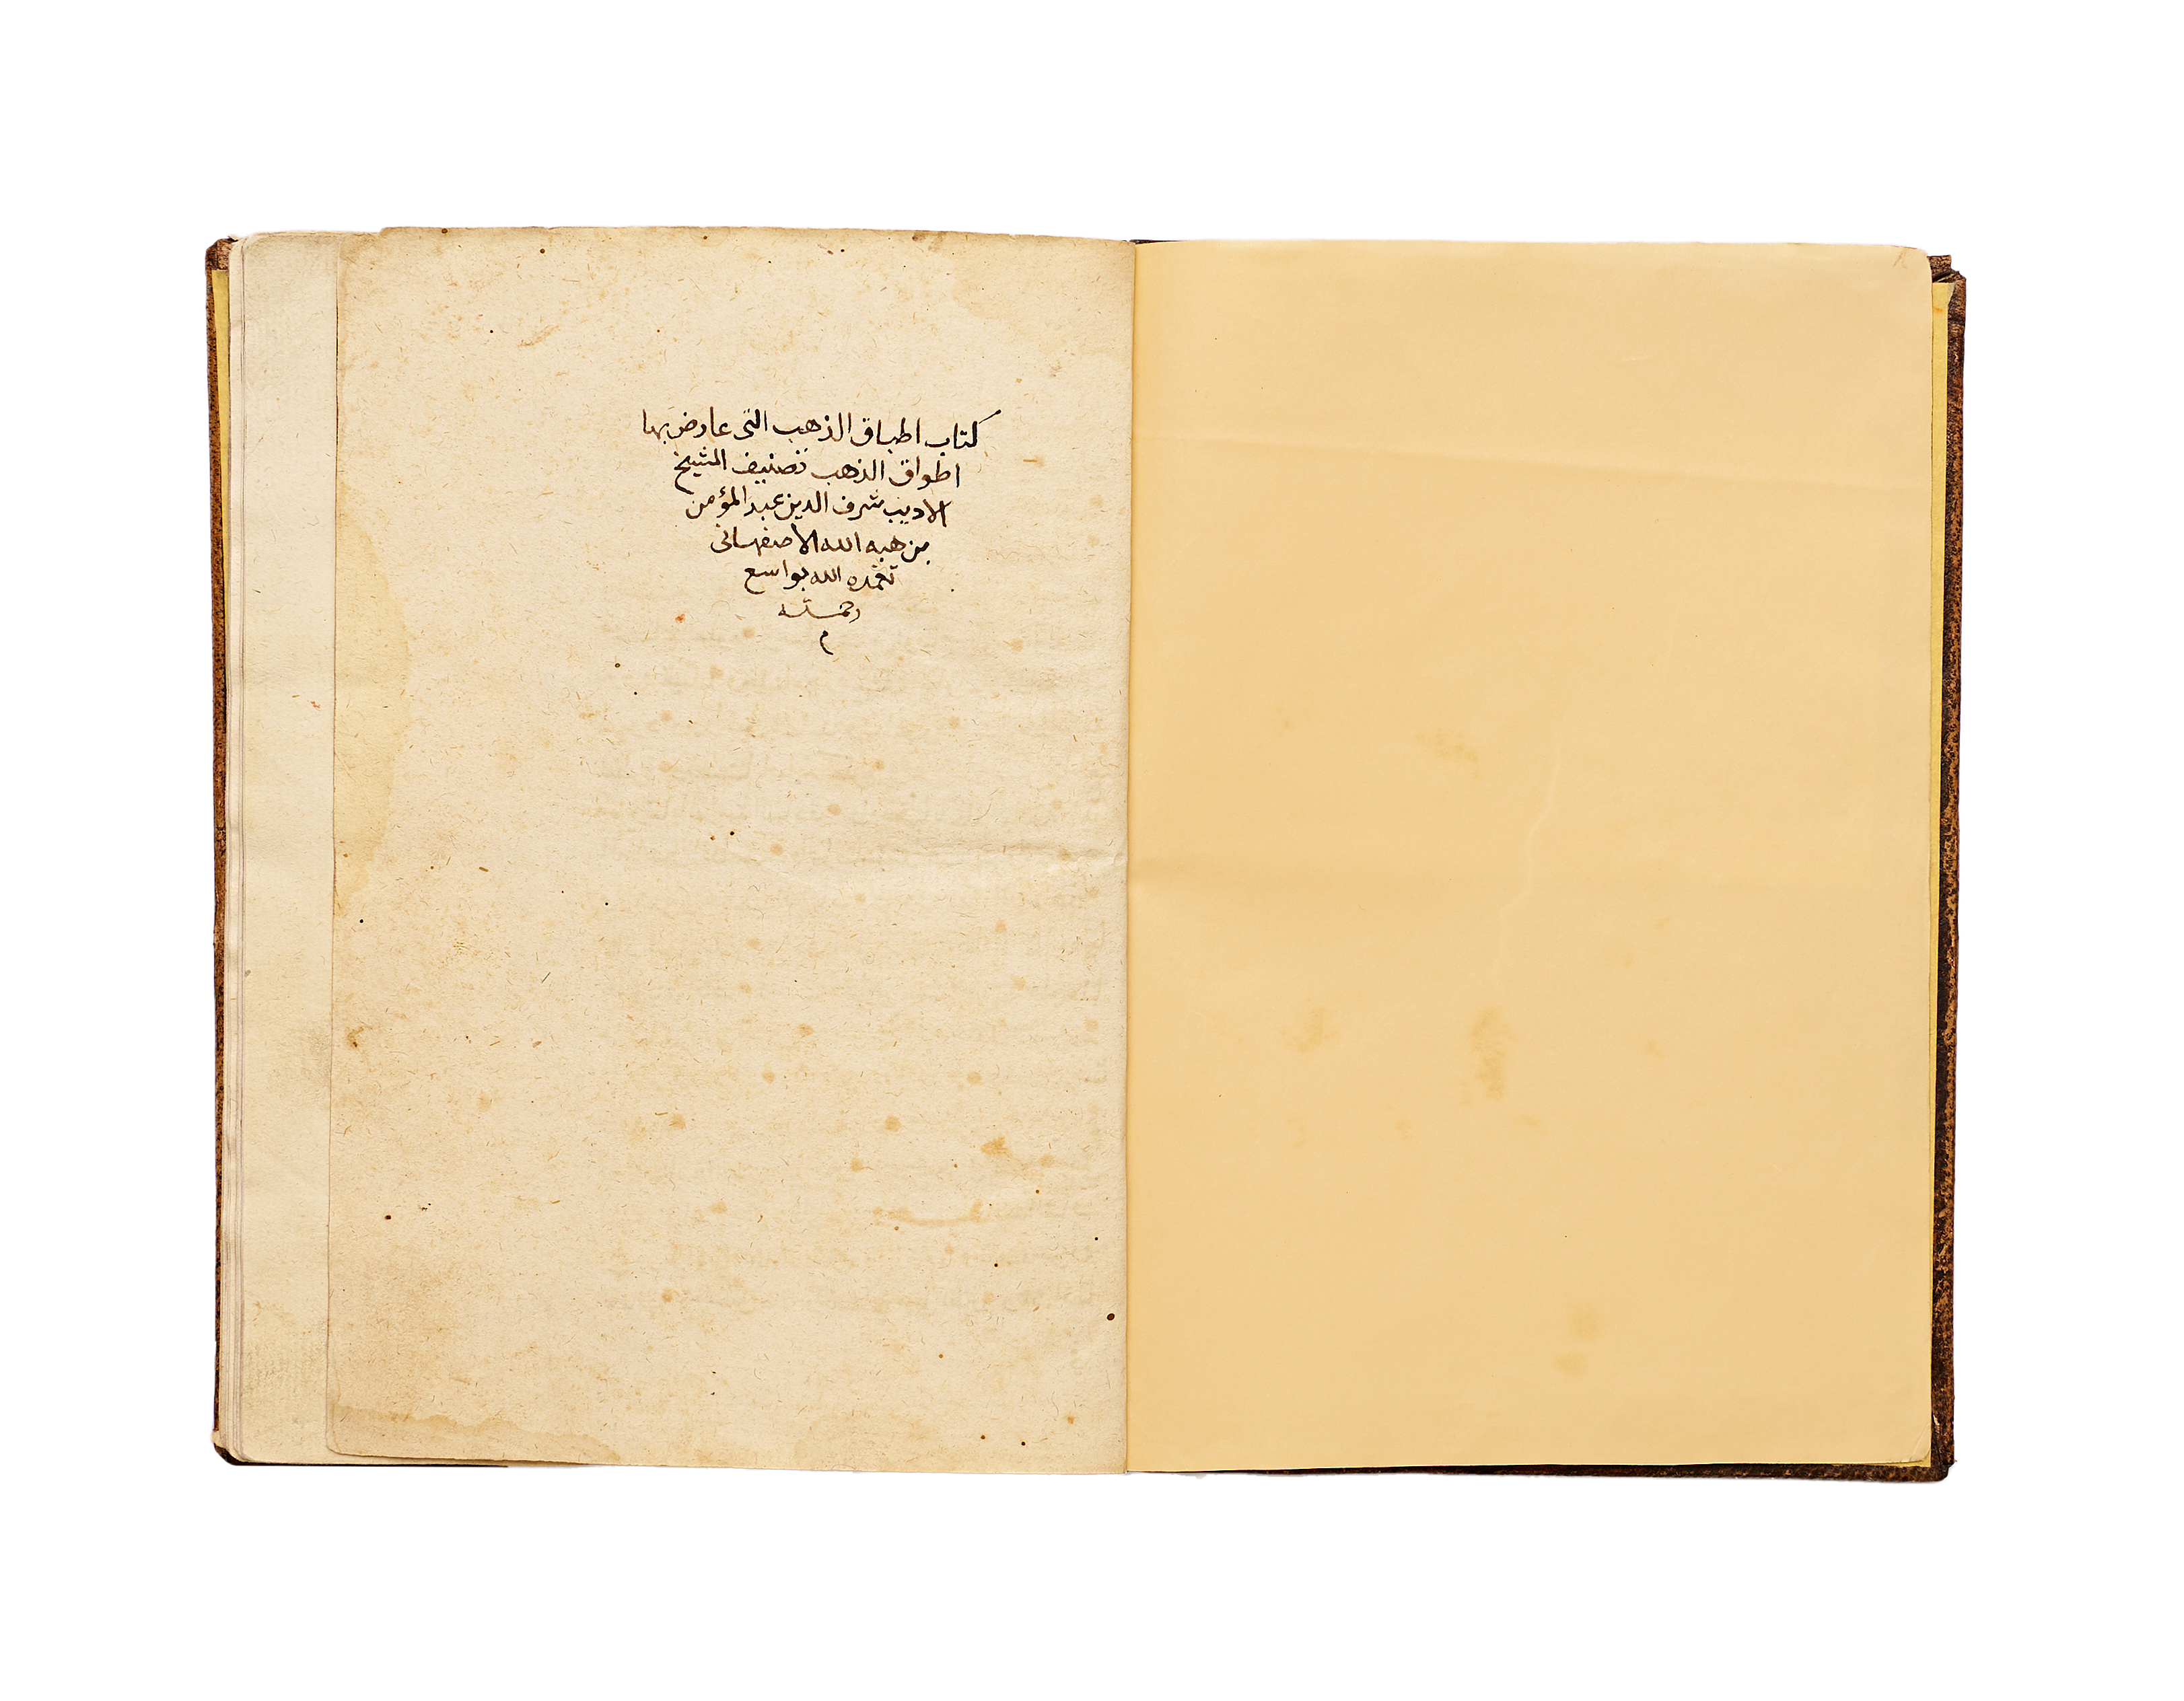 كتاب اطباق الذهب التى عارض بها
اطواق الذهب تصنيف الشيخ
الاديب شرف الدين عبد المؤمن
بن هبه الله الاصفهانى
تغمده الله بواسع
رحمته
م